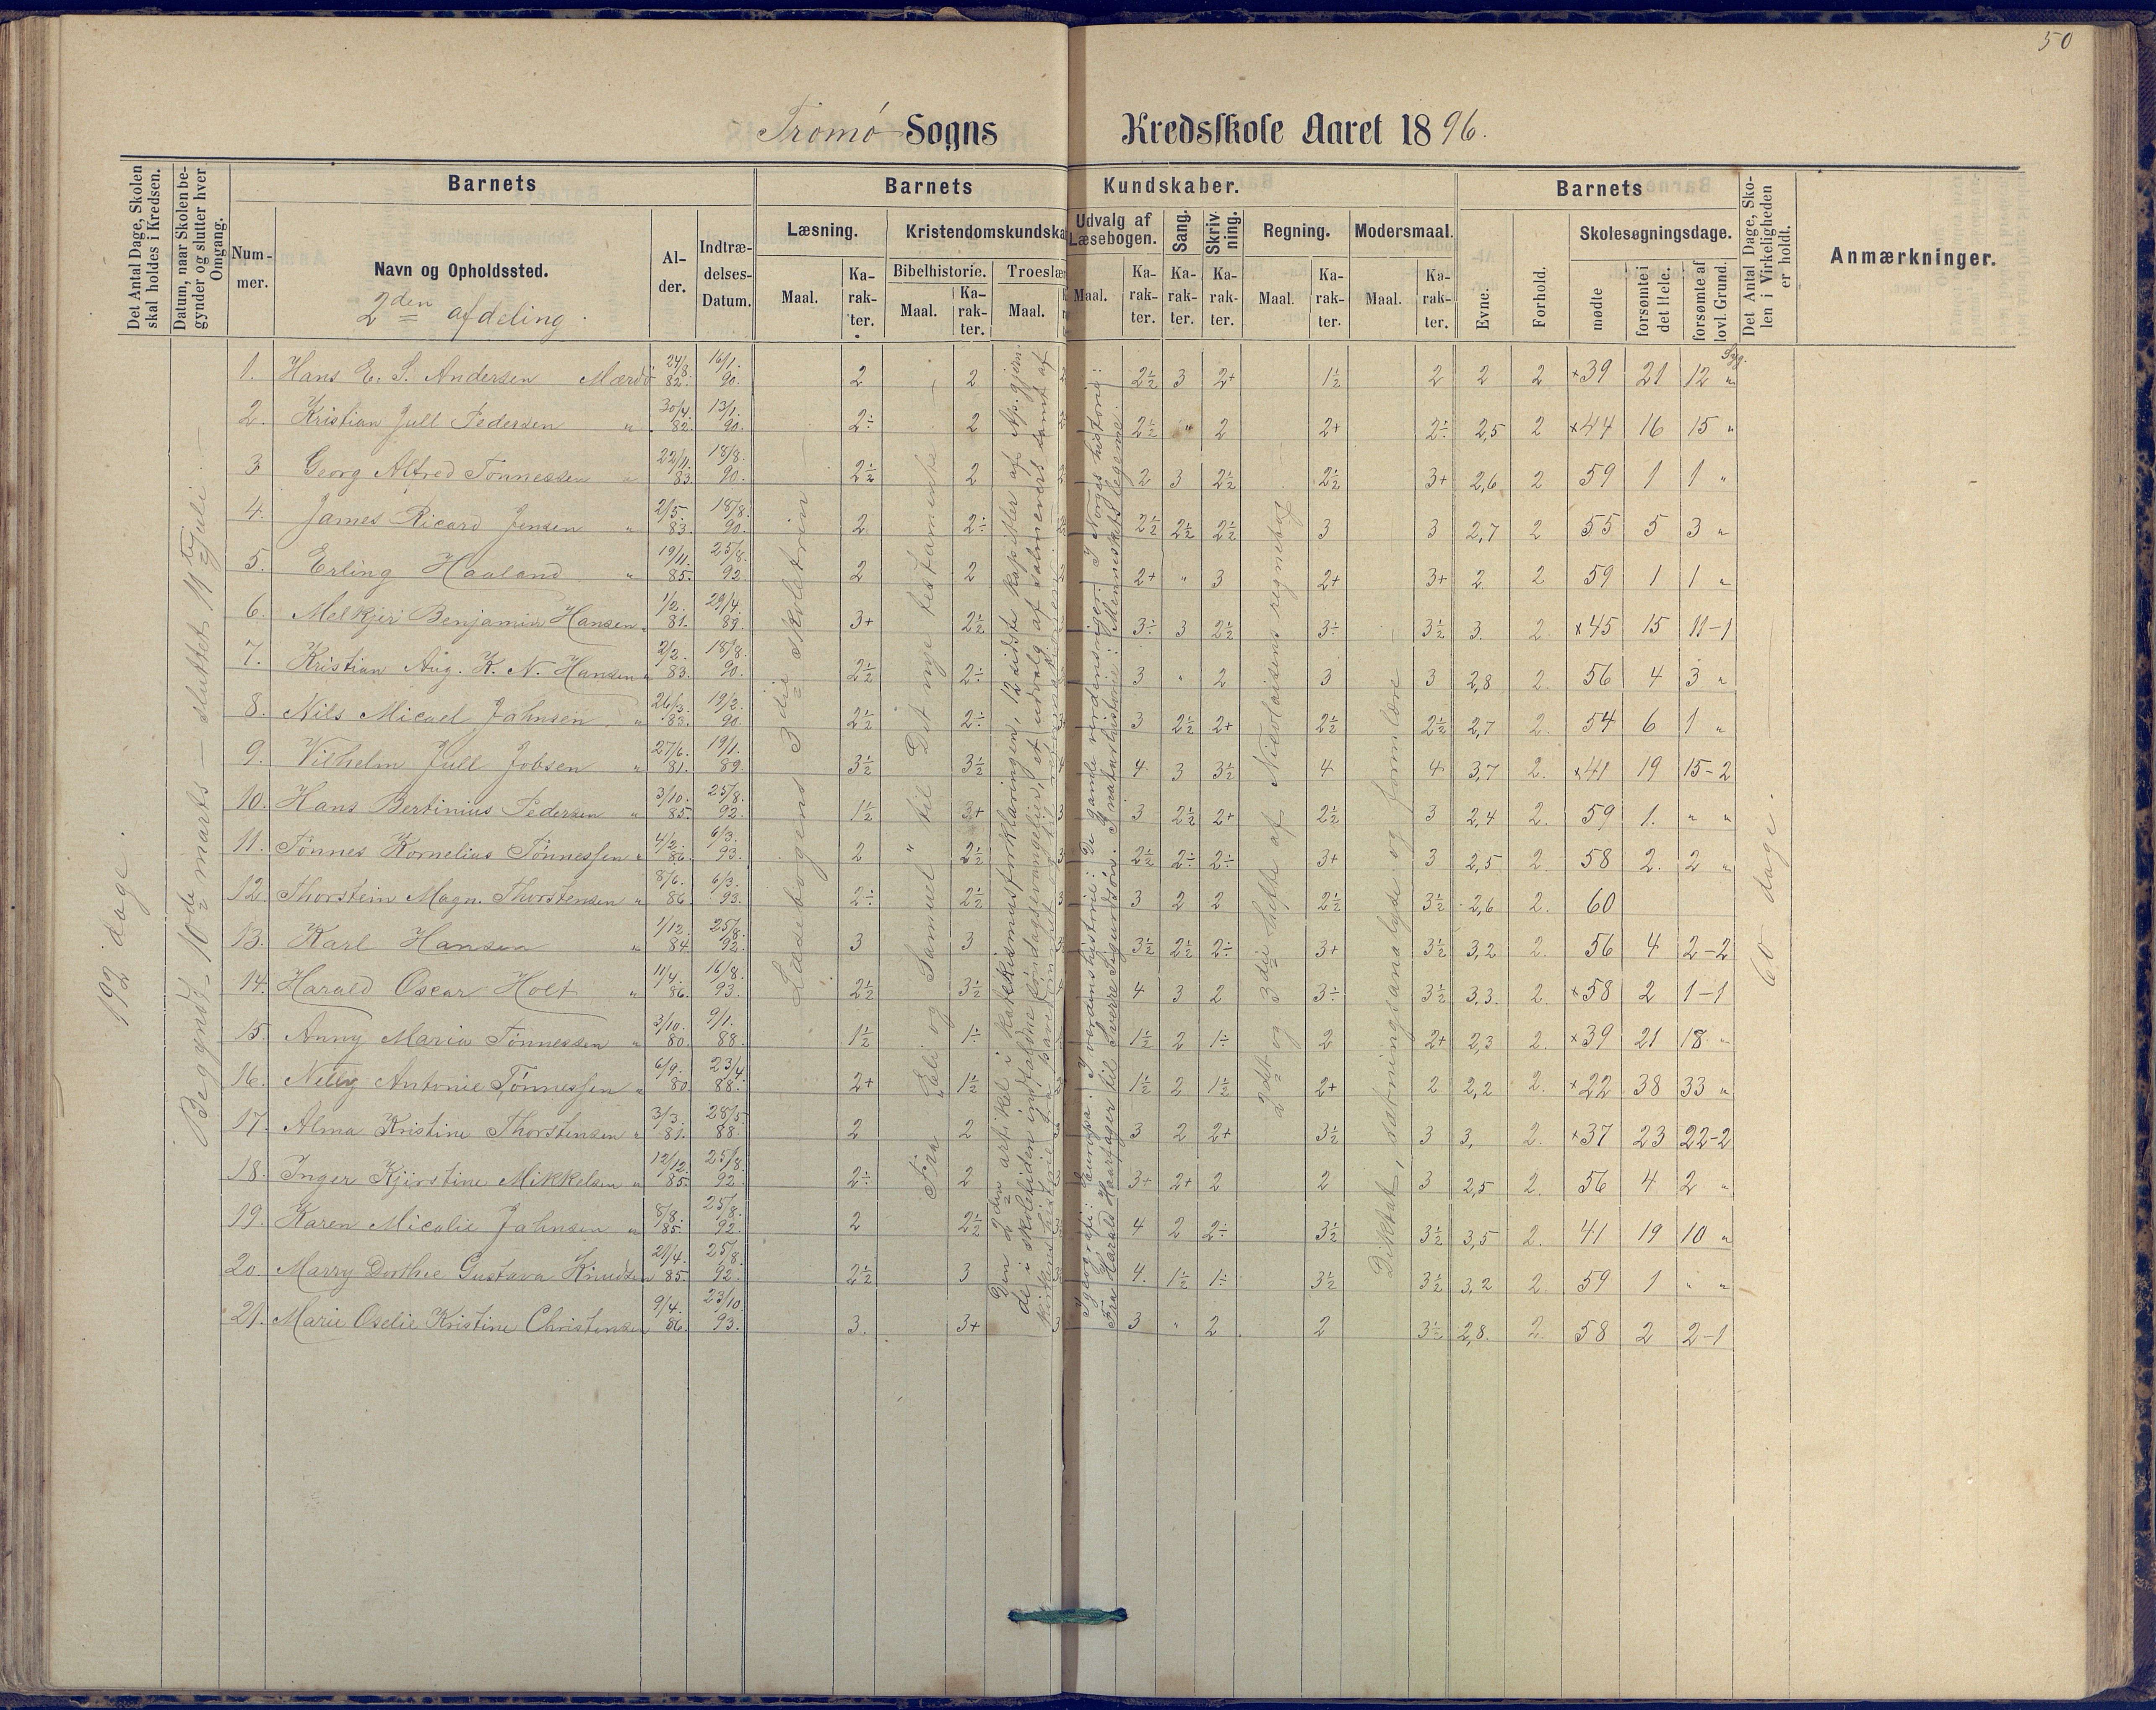 50
Tromø Sogns Kredsskole Aaret 1896.
Det Antal Dage, Skolen skal holdes i Kredsen.
Datum, naar Skolen begynder og slutter hver Omgang.
Barnets
Nummer.
Navn og Opholdssted.
2den afdeling.
Alder.
Indtrædelses-Datum.
Barnets Kundskaber.
Læsning.
Maal.
Karakter.
Kristendomskundska
Bibelhistorie.
Maal.
Karakter.
Troeslær
Maal.
Udvalg af Læsebogen.
Maal.
Karakter.
Sang.
Karakter.
Skrivning.
Karakter.
Regning.
Maal.
Karakter.
Modersmaal.
Maal.
Karakter.
Barnets
Evne.
Forhold.
Skolesøgningsdage.
mødte
forsømte i det Hele.
forsømte af lovl. Grund.
Det Antal Dage, Skolen i Virkeligheden er holdt.
Anmærkninger.
192 dage.
Begyndt 10de marts – sluttet 11te Juli. –
Læsebogens 3die skoletrin –
Fra Eli og Samuel til Det nye testamente –
Den 2den artikel i katekismusforklaringen, 12 sidste kapitler af Ap. gjern.
de i skoletiden indfaldne søndagsevangelier, et udvalg af salmevers samt af
I geografi: Europa. I verdenshistorie: De gamle verdensriger. I Norges historie:
Fra Harald Haarfager til Sverre Sigurdsøn. I naturhistorie: Menneskets legeme.
2det og 3die hefte af Nicolaisens regnebog
Diktat, sætningsanalyse og formlære
60 dage.
Syg.
1. Hans E. S. Andersen Mærdø 24/8 82. 16/1. 90. 2 2 2½ 3 2+ 1½ 2 2 2 ×39 21 12 "
2. Kristian Jull Pedersen " 30/4. 82. 13/1. 90. 2÷ 2 2½ " 2 2+ 2÷ 2,5 2 ×44 16 15 "
3 Georg Alfred Tønnessen " 22/11. 83. 18/8. 90. 2½ 2 2 3 2½ 2½ 3+ 2,6 2 59 1 1 "
4. James Ricard Jensen " 2/5. 83. 18/8. 90. 2 2÷ 2½ 2½ 2½ 3 3 2,7 2 55 5 3 "
5. Erling Haaland " 19/11. 85. 25/8. 92. 2 2 2+ " 3 2+ 3+ 2 2 59 1 1 "
6. Melkjer Benjamin Hansen " 1/2. 81. 29/4. 89. 3+ 2½ 3÷ 3 2½ 3÷ 3½ 3. 2 ×45 15 11–1
7. Kristian Aug. K. N. Hansen " 2/2. 83. 18/8. 90. 2½ 2÷ 3 " 2 3 3 2,8 2. 56 4 3 "
8. Nils Micael Jahnsen " 26/3. 83. 19/2. 90. 2½ 2÷ 3 2½ 2+ 2½ 2½ 2,7 2. 54 6 1 "
9. Vilhelm Jull Jobsen " 27/6. 81. 19/1. 89. 3½ 3½ 4. 3 3½ 4 4 3,7 2. ×41 19 15–2
10. Hans Bertinius Pedersen " 3/10. 85. 25/8. 92. 1½ 3+ 3 2½ 2+ 2½ 3 2,4 2. 59 1. " "
11. Tønnes Kornelius Tønnessen " 4/2. 86. 6/3. 93. 2 2½ 2½ 2÷ 2÷ 3+ 3 2,5 2. 58 2. 2 "
12. Thorstein Magn. Thorstensen " 8/6. 86. 6/3. 93. 2÷ 2½ 3 2 2 2½ 3½ 2,6 2. 60
13. Karl Hansen " 1/12. 84. 25/8. 92. 3 3 3½ 2½ 2÷ 3+ 3½ 3,2 2. 56 4 2–2
14. Harald Oscar Holt " 11/4. 86. 16/8. 93. 2½ 3½ 4 3 2 3÷ 3½ 3.3. 2. ×58 2 1–1
15. Anny Maria Tønnessen " 3/10. 80. 9/1. 88. 1½ 1÷ 1½ 2 1÷ 2 2+ 2,3 2. ×39 21 18. "
16. Nelly Antonie Tønnessen " 6/9. 80. 23/4 88. 2+ 1½ 1½ 2 1½ 2+ 2 2,2 2. ×22 38 33 "
17. Alma Kristine Thorstensen " 3/3. 81. 28/5 88. 2 2 3 2 2+ 3½ 3 3, 2. ×37 23 22–2
18. Inger Kjirstine Mikkelsen " 12/12. 85. 25/8. 92. 2÷ 2 3+ 2+ 2 2 3 2,5 2. 56 4 2 "
19. Karen Micalie Jahnsen " 8/8. 85. 25/8. 92. 2 2½ 4 2 2÷ 3½ 3½ 3,5 2. 41 19 10 "
20. Marry Dorthie Gustava Knudsen 21/4. 85. 25/8. 92. 2½ 3 4. 1½ 1÷ 3½ 3½ 3,2 2. 59 1 " "
21. Marie Oselie Kristine Christensen 9/4. 86. 23/10. 93. 3. 3+ 3 " 2 2 3½ 2,8. 2. 58 2 2–1